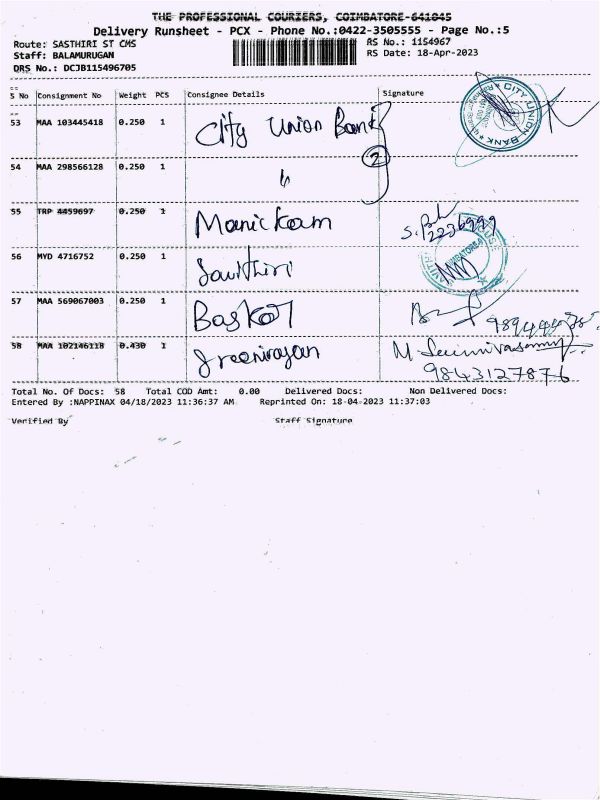 THE PROFESSIONAL COURIERS, COIMBATORE-641045
Delivery Runsheet - PCX - Phone No.:0422-3505555 - Page No.:5
Route: SASTHIRI ST CMS RS No.: 1154967
Staff: BALAMURUGAN RS Date: 18-Apr-2023
DRS No.: DCJB115496705
S No Consignment No Weight PCS Consignee Details Signature
CITY UNION BANK
53 MAA 103445418 0.250 1 City Union Bank
2
54 MAA 298566128 0.250 1
55 TRP 4459697 0.250 1 Manickam 2236999
56 MYD 4716752 0.250 1 Savithiri
57 MAA 569067003 0.250 1 Baskar
58 MAA 102146118 0.430 1 Sreenivasan
9843127876
Total No. Of Docs: 58 Total COD Amt: 0.00 Delivered Docs: Non Delivered Docs:
Entered By :NAPPINAX 04/18/2023 11:36:37 AM Reprinted On: 18-04-2023 11:37:03
Verified By Staff Signature